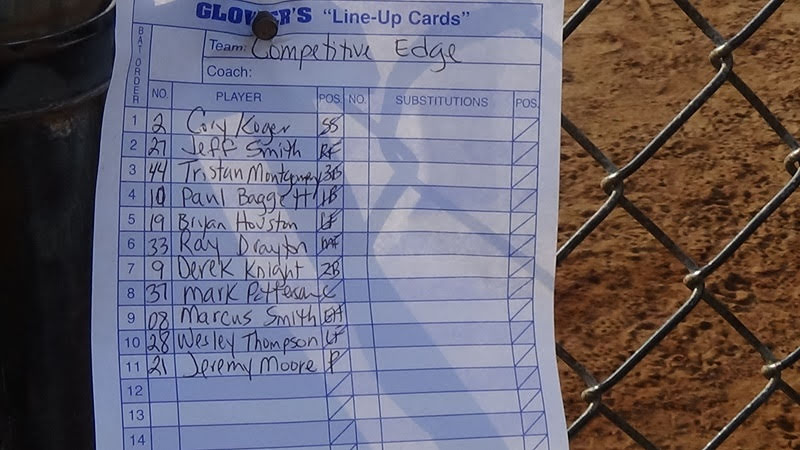 GLOVER'S "Line-Up Cards"
BAT ORDER
Team: Competitive Edge
Coach:
NO. PLAYER POS. NO. SUBSTITUTIONS POS.
1 2 Cory Koger SS
2 27 Jeff Smith RF
3 44 Tristan Montgomery 3B
4 10 Paul Baggett 1B
5 19 Bryan Houston
6 33 Ray Drayton
7 9 Derek Knight 2B
8 37 Mark Patterson C
9 08 Marcus Smith EH
10 28 Wesley Thompson
11 21 Jeremy Moore P
12
13
14